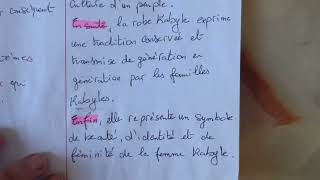 r conséquent
culture d'un peuple.
Ensuite, la robe Kabyle exprime
une tradition conservée et
transmise de génération en
génération par les familles
Kabyles.
Enfin, elle représente un symbole
de beauté, d'identité et de
féminité de la femme Kabyle.